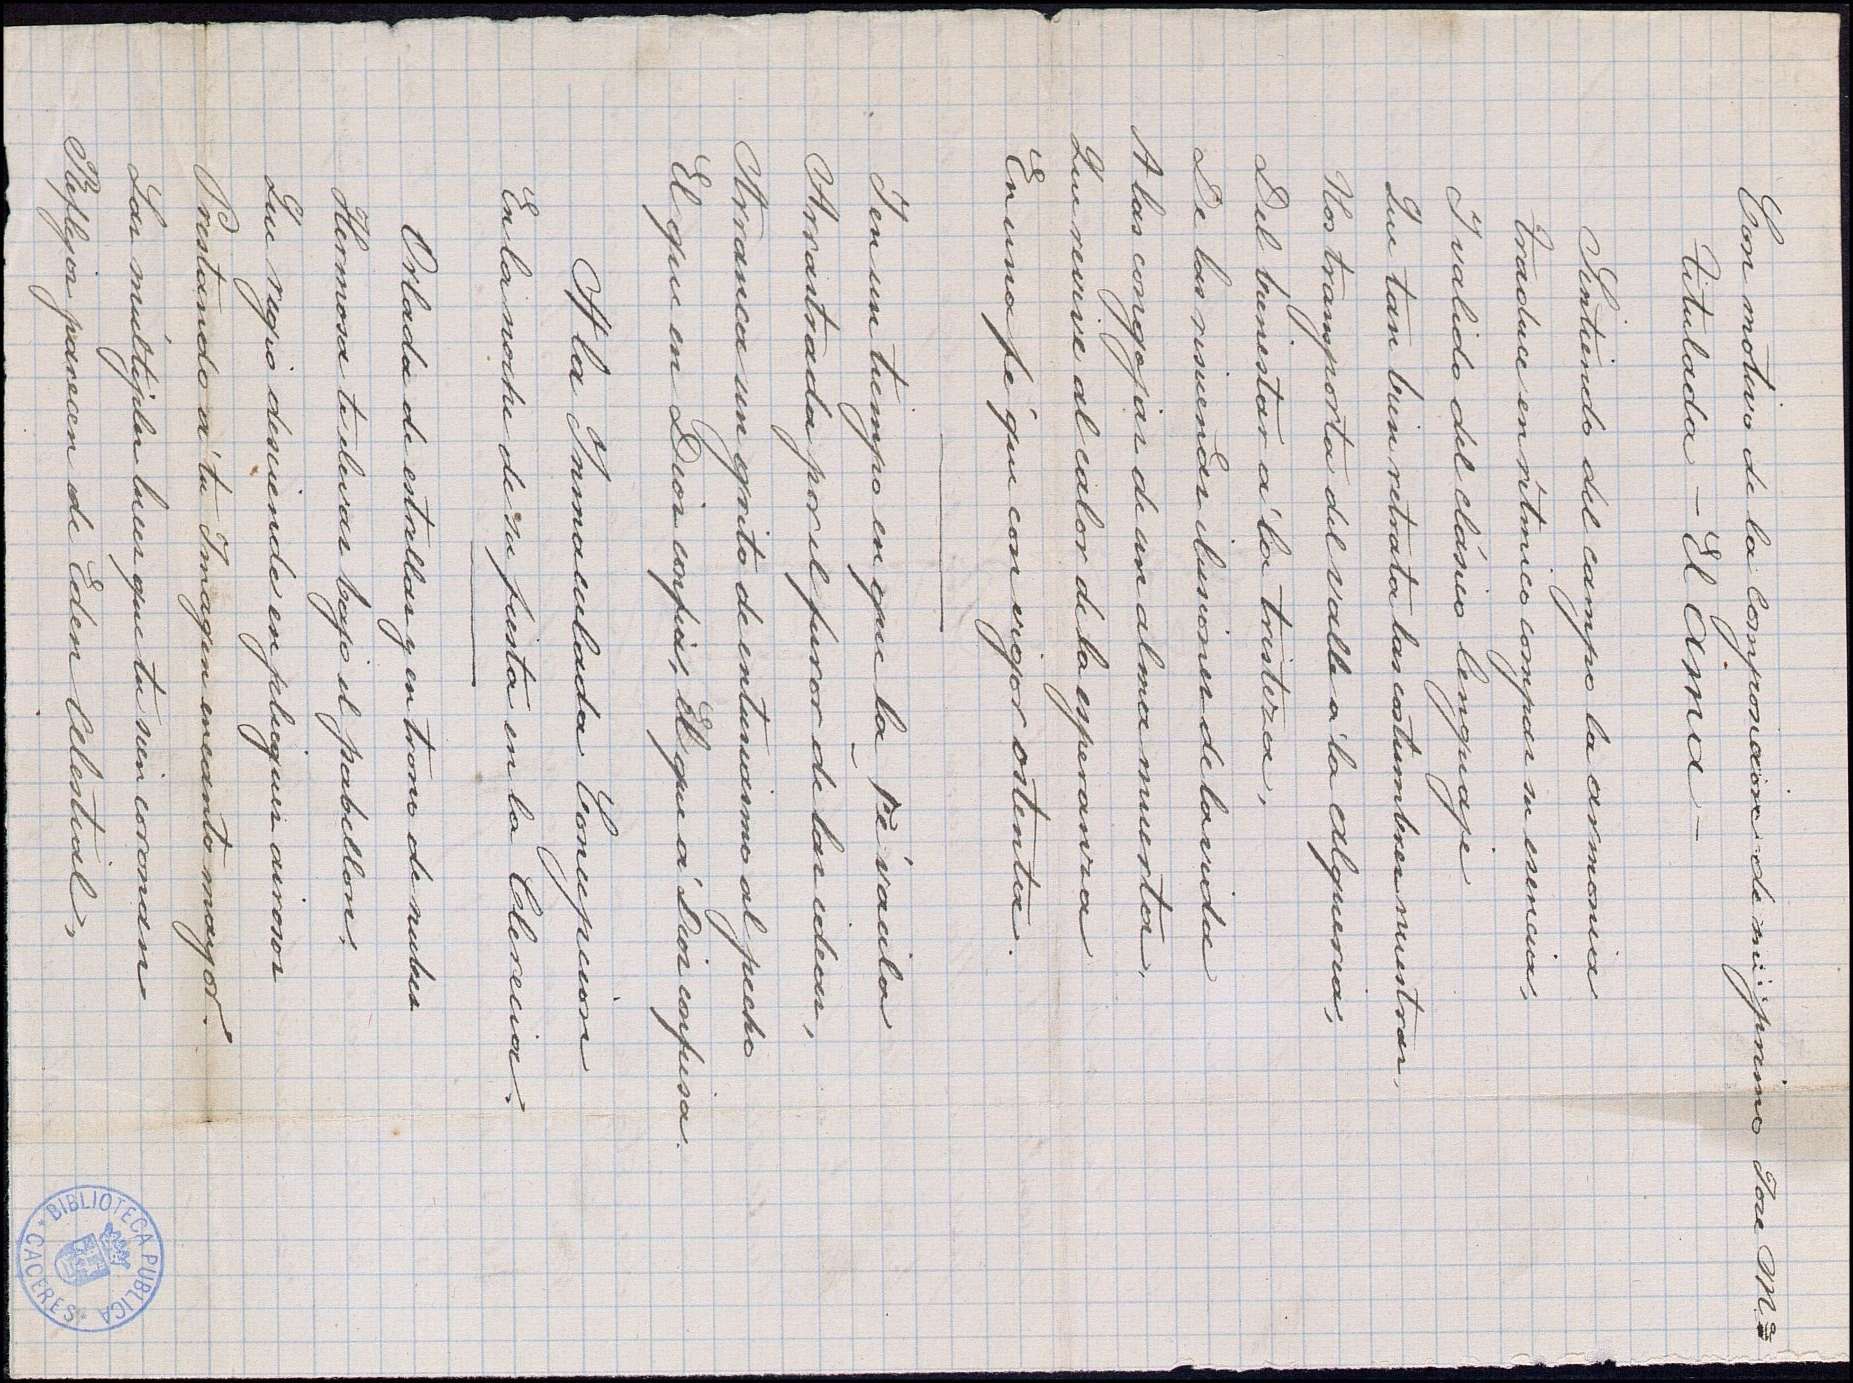 Con motivo de la composicion de mi primo Jose M.ª
titulada - El Ama -
Sintiendo del campo la armonia
traduce en rítmico compas su esencia,
I valido del clásico lenguaje
Que tan bien retrata las costumbres nuestras,
Nos transporta del valle á la alqueria,
Del bienestar á la tristeza,
De las risueñas ilusiones de la vida
A las congojas de un alma muerta,
Que revive al calor de la esperanza
En una fé que con vigor ostenta.
I en un tiempo en que la Fé vacila
Arrastrada por el furor de las ideas,
Arranca un grito de entusiasmo al pecho
El que en Dios confia, El que á Dios confiesa.
A la Inmaculada Concepcion
En la noche de su fiesta en la Clerecia.
Orlada de estrellas y en trono de nubes
Hermosa te elevas bajo el pabellon,
Que regio desciende en pliegues airosos
Prestando á tu Imagen encanto mayor.
Las múltiples luces que tu sien coronan
Reflejos parecen de Eden Celestial,
BIBLIOTECA PUBLICA
CACERES